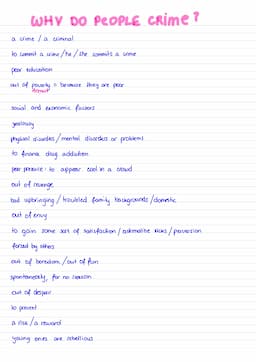 WHY DO PEOPLE CRIME?
a crime / a criminal
to commit a crime / he / she commits a crime
poor education
out of poverty = because they are poor
social and economic factors
jealousy
physical disorders / mental disorders or problems
to finance drug addiction
peer pressure: to appear cool in a crowd
out of revenge
bad upbringing / troubled family backgrounds / domestic
out of envy
to gain some sort of satisfaction / adrenaline kicks / possession
forced by others
out of boredom / out of fun
spontaneously, for no reason
out of despair
to prevent
a rise / a reward
young ones are rebellious